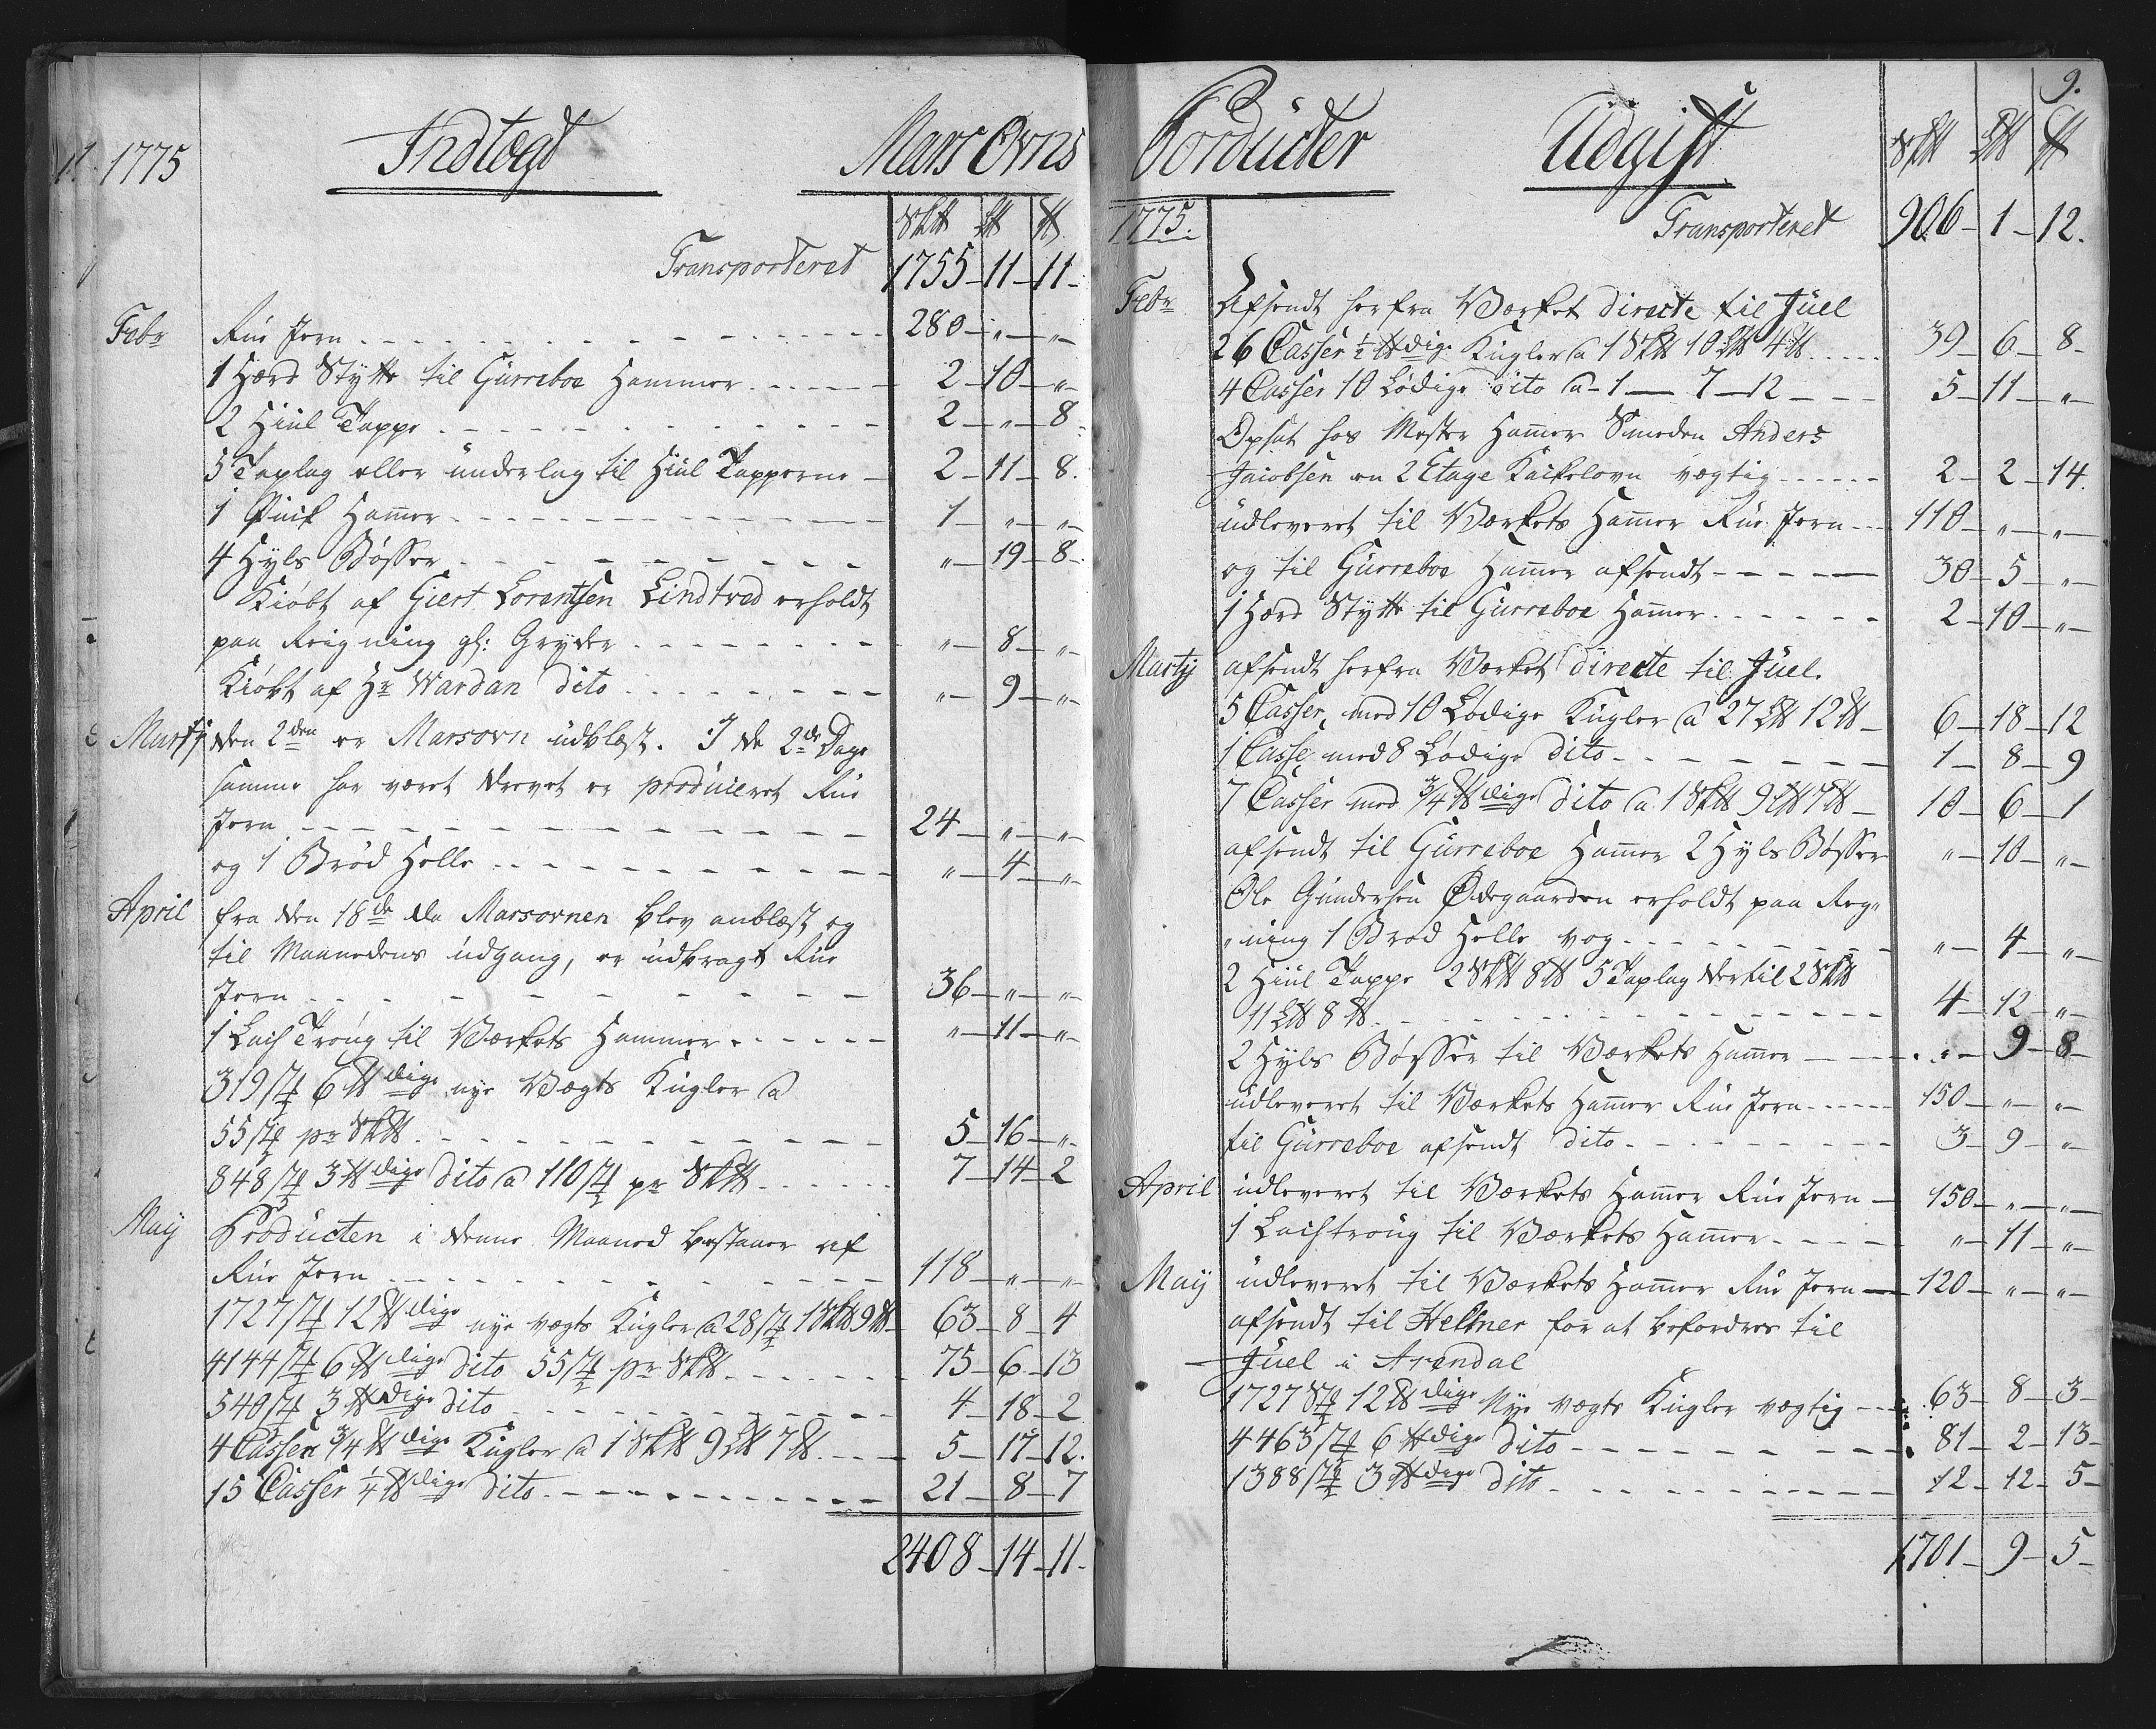 1775 Indtægt Mars Ovns
Sk℔ L℔ ℔
Transporteret 1755 - 11 - 11 -
Febr Rue Jern 280 - " - "
1 Hærd Støtte til Gürreboe Hammer 2 - 10 - "
2 Hiül Tappe 2 - " - 8
5 Taplag eller ünderlag til Hiül Tapperne 2 - 11 - 8
1 Puik Ham̄er 1 - " - "
4 Hyls Bøsser " - 19 - 8
Kiøbt af Giert Lorentsen Lindtved erholdt
paa Reigning gl: Gryder " - 8 - "
Kiøbt af Hr Wardan dito " - 9 - "
Martj den 2den er Marsovn udblæst. I de 2de Dage
samme har været drevet er produceret Rue
Jern 24 - " - "
og 1 Brød Helle " - 4 - "
April fra den 18de da Marsovnen blev anblæst og
til Maanedens üdgang, er üdbragt Rue
Jern 36 - " - "
1 Laisk Trøug til Værkets Hammer " - 11 - "
319 St 6 ℔dige nye Vægts Kugler a
55 St pr Sk℔ 5 - 16 - "
848 St 3 ℔dige dito a 110 St pr Sk℔ 7 - 14 - 2
Maij Producten i denne Maaned bestaaer af
Rue Jern 118 - " - "
1727 St 12 ℔dige nye vægts Kugler a 28 St 1 Sk℔ 9 ℔ 63 - 8 - 4
4144 St 6 ℔dige dito 55 St pr Sk℔ 75 - 6 - 13
540 St 3 ℔dige dito 4 - 18 - 2
4 Casser 3/4 ℔dige Kugler a 1 Sk℔ 9 L℔ 7 ℔ 5 - 17 - 12.
15 Casser 1/4 ℔dige dito 21 - 8 - 7
2408 - 14 - 11 -
9.
Prodücter Üdgift Sk℔ L℔ ℔
1775. Transporteret 906 - 1 - 12.
Febr Afsendt herfra Værket directe til Jüel
26 Casser 1/2 ℔dige Kugler a 1 Sk℔ 10 L℔ 4 ℔ 39 - 6 - 8 -
4 Casser 10 Lødige dito a - 1 - 7 - 12 5 - 11 - "
Opsat hos Mester Ham̄er Smeden Anders
Jacobsen en 2 Etage Kackelovn vægtig 2 - 2 - 14.
üdleveret til Værkets Ham̄er Rue Jern 110 - " - "
og til Gürreboe Ham̄er afsendt 30 - 5 - "
1 Hærd Støtte til Gürreboe Ham̄er 2 - 10 - "
Martij afsendt herfra Værket directe til Jüel.
5 Casser med 10 Lødige Kugler a 27 L℔ 12 ℔ 6 - 18 - 12
1 Casse med 8 Lødige dito 1 - 8 - 9
7 Casser med 3/4 ℔dige dito a 1 Sk℔ 9 L℔ 7 ℔ 10 - 6 - 1
afsendt til Gürreboe Ham̄er 2 Hyls Bøsser " - 10 - "
Ole Gundersen Ødegaarden erholdt paa Reg"
"ning 1 Brød Helle vog " - 4 - "
2 Hiül Tappe 2 Sk℔ 8 ℔ 5 Taplag dertil 2 Sk℔
11 L℔ 8 ℔ 4 - 12 - "
2 Hyls Bøsser til Værkets Ham̄er " - 9 - 8 -
üdleveret til Værkets Ham̄er Rue Jern 150 - " - "
til Gürreboe afsendt dito 3 - 9 - "
April üdleveret til Værkets Ham̄er Rue Jern 150 - " - "
1 Laisktroug til Værkets Ham̄er " - 11 - "
Maij üdleveret til Værkets Ham̄er Rue Jern 120 - " - "
afsendt til Hellner for at befordres til
Jüel i Arendal
1727 St 12 ℔dige Nye vægts Kugler vægtig 63 - 8 - 3 -
4463 St 6 ℔dige dito 81 - 2 - 13 -
1388 St 3 ℔dige dito 12 - 12 - 5 -
1701 - 9 - 5 -